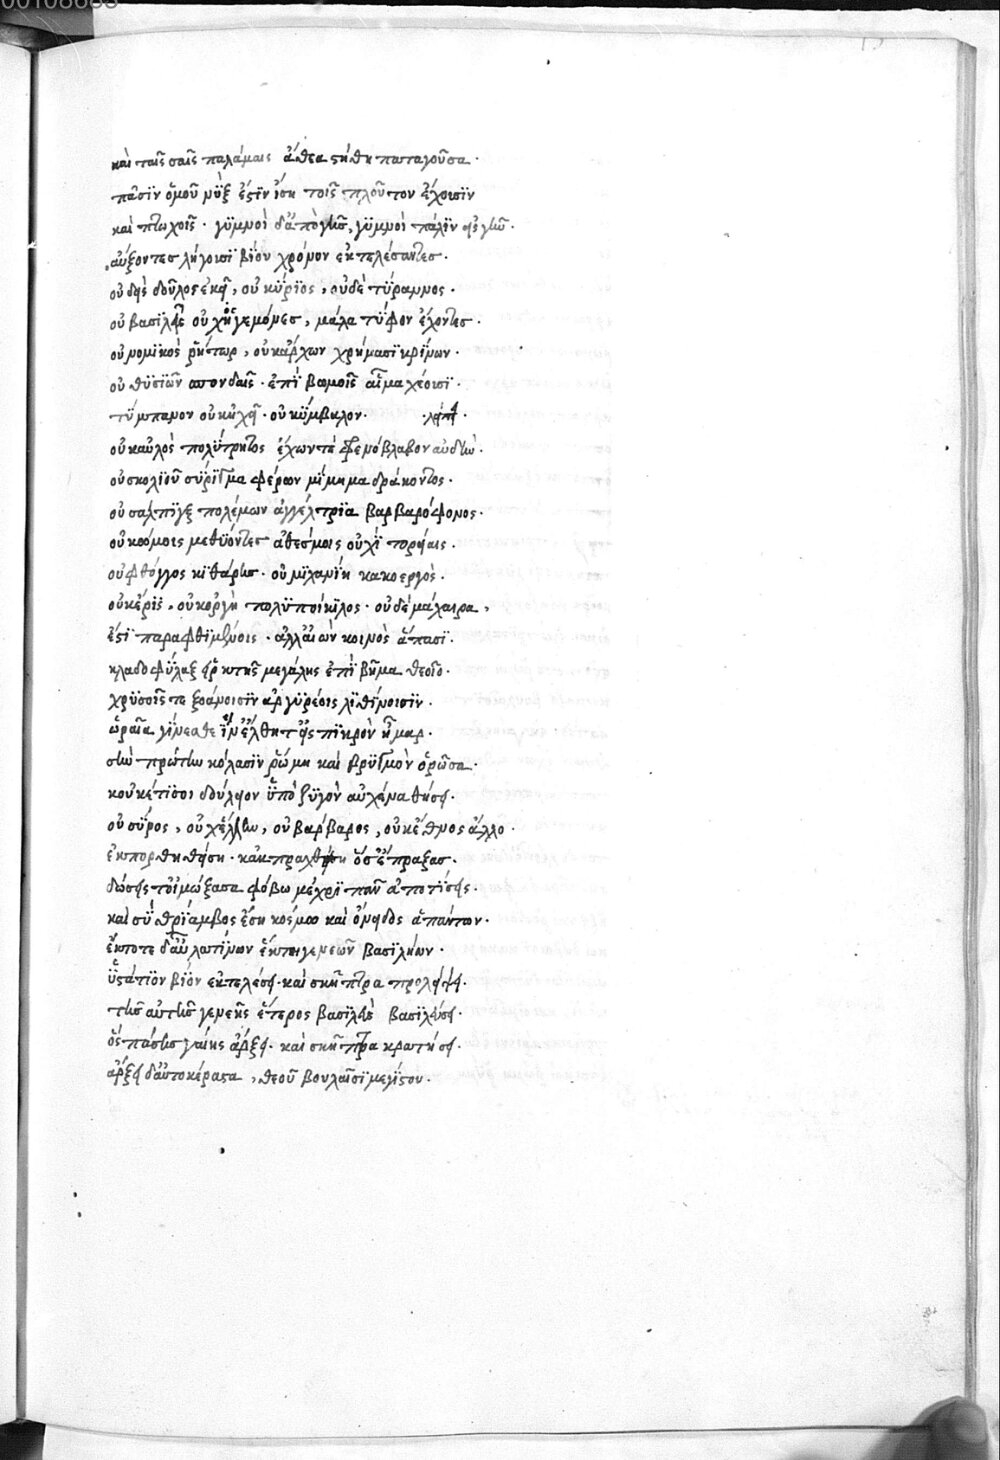 καὶ ταῖς σαῖς παλάμαις ἄθεα στήθη παταγοῦσα.
πᾶσϊν ὁμοῦ νὺξ ἐστϊν ἴση τοῖς πλοῦτον ἔχουσϊν
καὶ πτωχοῖς. γϋμνοὶ δ' ἀπὸ γῆς, γϋμνοὶ πάλϊν εἰς γῆν.
αὔξοντες λήγουσϊ βίον χρόνον ἐκτελέσαντες.
οὐδεὶς δοῦλος ἐκεῖ, οὐ κύριος, οὐδὲ τύραννος.
οὐ βασιλεῖς οὐχ ἡγεμόνες, μάλα τύφον ἔχοντες.
οὐ νομικὸς ῥήτωρ, οὐκ ἄρχων χρήμασϊ κρίνων.
οὐ θϋσϊῶν σπονδαῖς. ἐπὶ βωμοῖς αἷμα χέουσϊ.
τύμπανον οὐκ ἠχεῖ. οὐ κύμβαλον. λείπει.
οὐκ αὐλὸς πολύτρητος ἔχων τε φρενόβλαβον αὐδήν.
οὐ σκολϊοῦ σύρϊγμα φέρων μίμημα δράκοντος.
οὐ σάλπϊγξ πολέμων ἀγγέλτρϊα βαρβαρόφωνος.
οὐ κώμοις μεθύοντες ἀθεσμοις οὐχὶ χορείαις.
οὐ φθόγγος κϊθάρης. οὐ μϊχανὶη κακοεργὸς.
οὐκ ἔρϊς, οὐκ ὀργὴ πολϋποίκϊλος. οὐδὲ μάχαιρα,
ἐστὶ παρὰ φθϊμένοις. ἀλλ' αἰὼν κοινὸς ἅπασϊ.
κλαδοφύλαξ εἱρκτῆς μεγάλης ἐπὶ βῆμα θεοῖο.
χρϋσοῖς τε ξοάνοισϊν ἀργϋρέοις λϊθίνοισϊν.
ὡραῖα γίνεσθε ἵν' ἔλθητ' εἰς πϊκρὸν ἦμαρ.
σὴν πρώτην κόλασϊν ῥώμη καὶ βρϋγμὸν ὁρῶσα.
κοὐκέτϊ σοι δούλϊον ὑπὸ ζϋγὸν αὐχένα θήσει.
οὐ σύρος, οὐχ ἕλλην, οὐ βάρβαρος, οὐκ ἔθνος ἄλλο.
ἐκπορθηθήση. κἀκπραχθήση ὅσ' ἔπραξας.
δώσεις τ' οἰμώξασα φόβω μέχρϊ πᾶν ἀποτίσεις.
καὶ σὺ θρϊαμβος ἔση κόσμω καὶ ὄνειδος ἁπάντων.
ἔκποτε δ' αὖ λατίνων ἕκτη γενεῶν βασιλήων.
ὑστάτϊον βίον ἐκτελέσει. καὶ σκῆπτρα προλείψει.
τῆς αὐτῆς γενεῆς ἕτερος βασϊλεὺς βασϊλεύσει.
ὃς πάσης γαίης ἄρξει. καὶ σκῆπτρα κρατήσει.
ἄρξει δ' αὐτοκέραστα, θεοῦ βουλαῖσϊ μεγίστου.